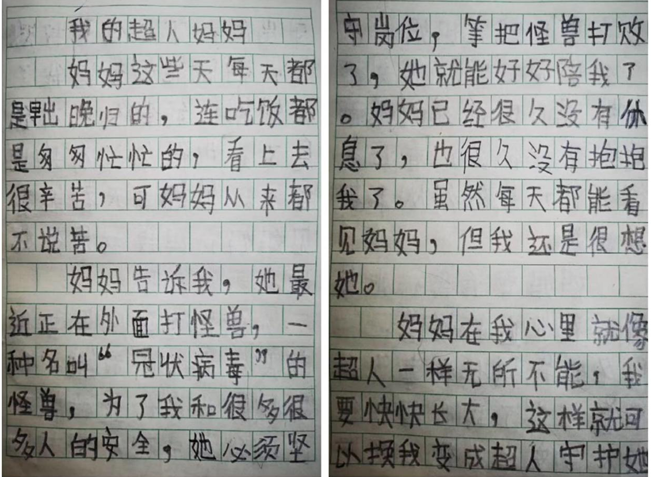 我的超人妈妈
妈妈这些天每天都
是早出晚归的，连吃饭都
是匆匆忙忙的，看上去
很辛苦，可妈妈从来都
不说苦。
妈妈告诉我，她最
近正在外面打怪兽，一
种名叫“冠状病毒”的
怪兽，为了我和很多很
多人的安全，她必须坚
守岗位，等把怪兽打败
了，她就能好好陪我了
。妈妈已经很久没有休
息了，也很久没有抱抱
我了。虽然每天都能看
见妈妈，但我还是很想
她。
妈妈在我心里就像
超人一样无所不能，我
要快快长大，这样就可
以换我变成超人守护她